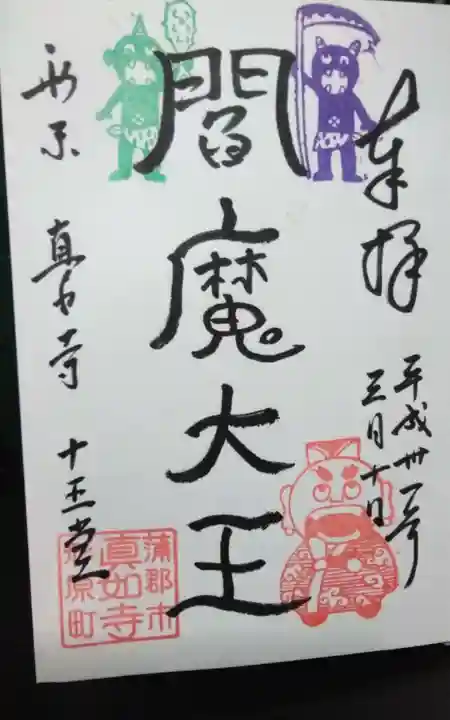 奉拝
平成卅一年
三月十日
閻魔大王
西京 真如寺 十王堂
蒲郡市
真如寺
形原町